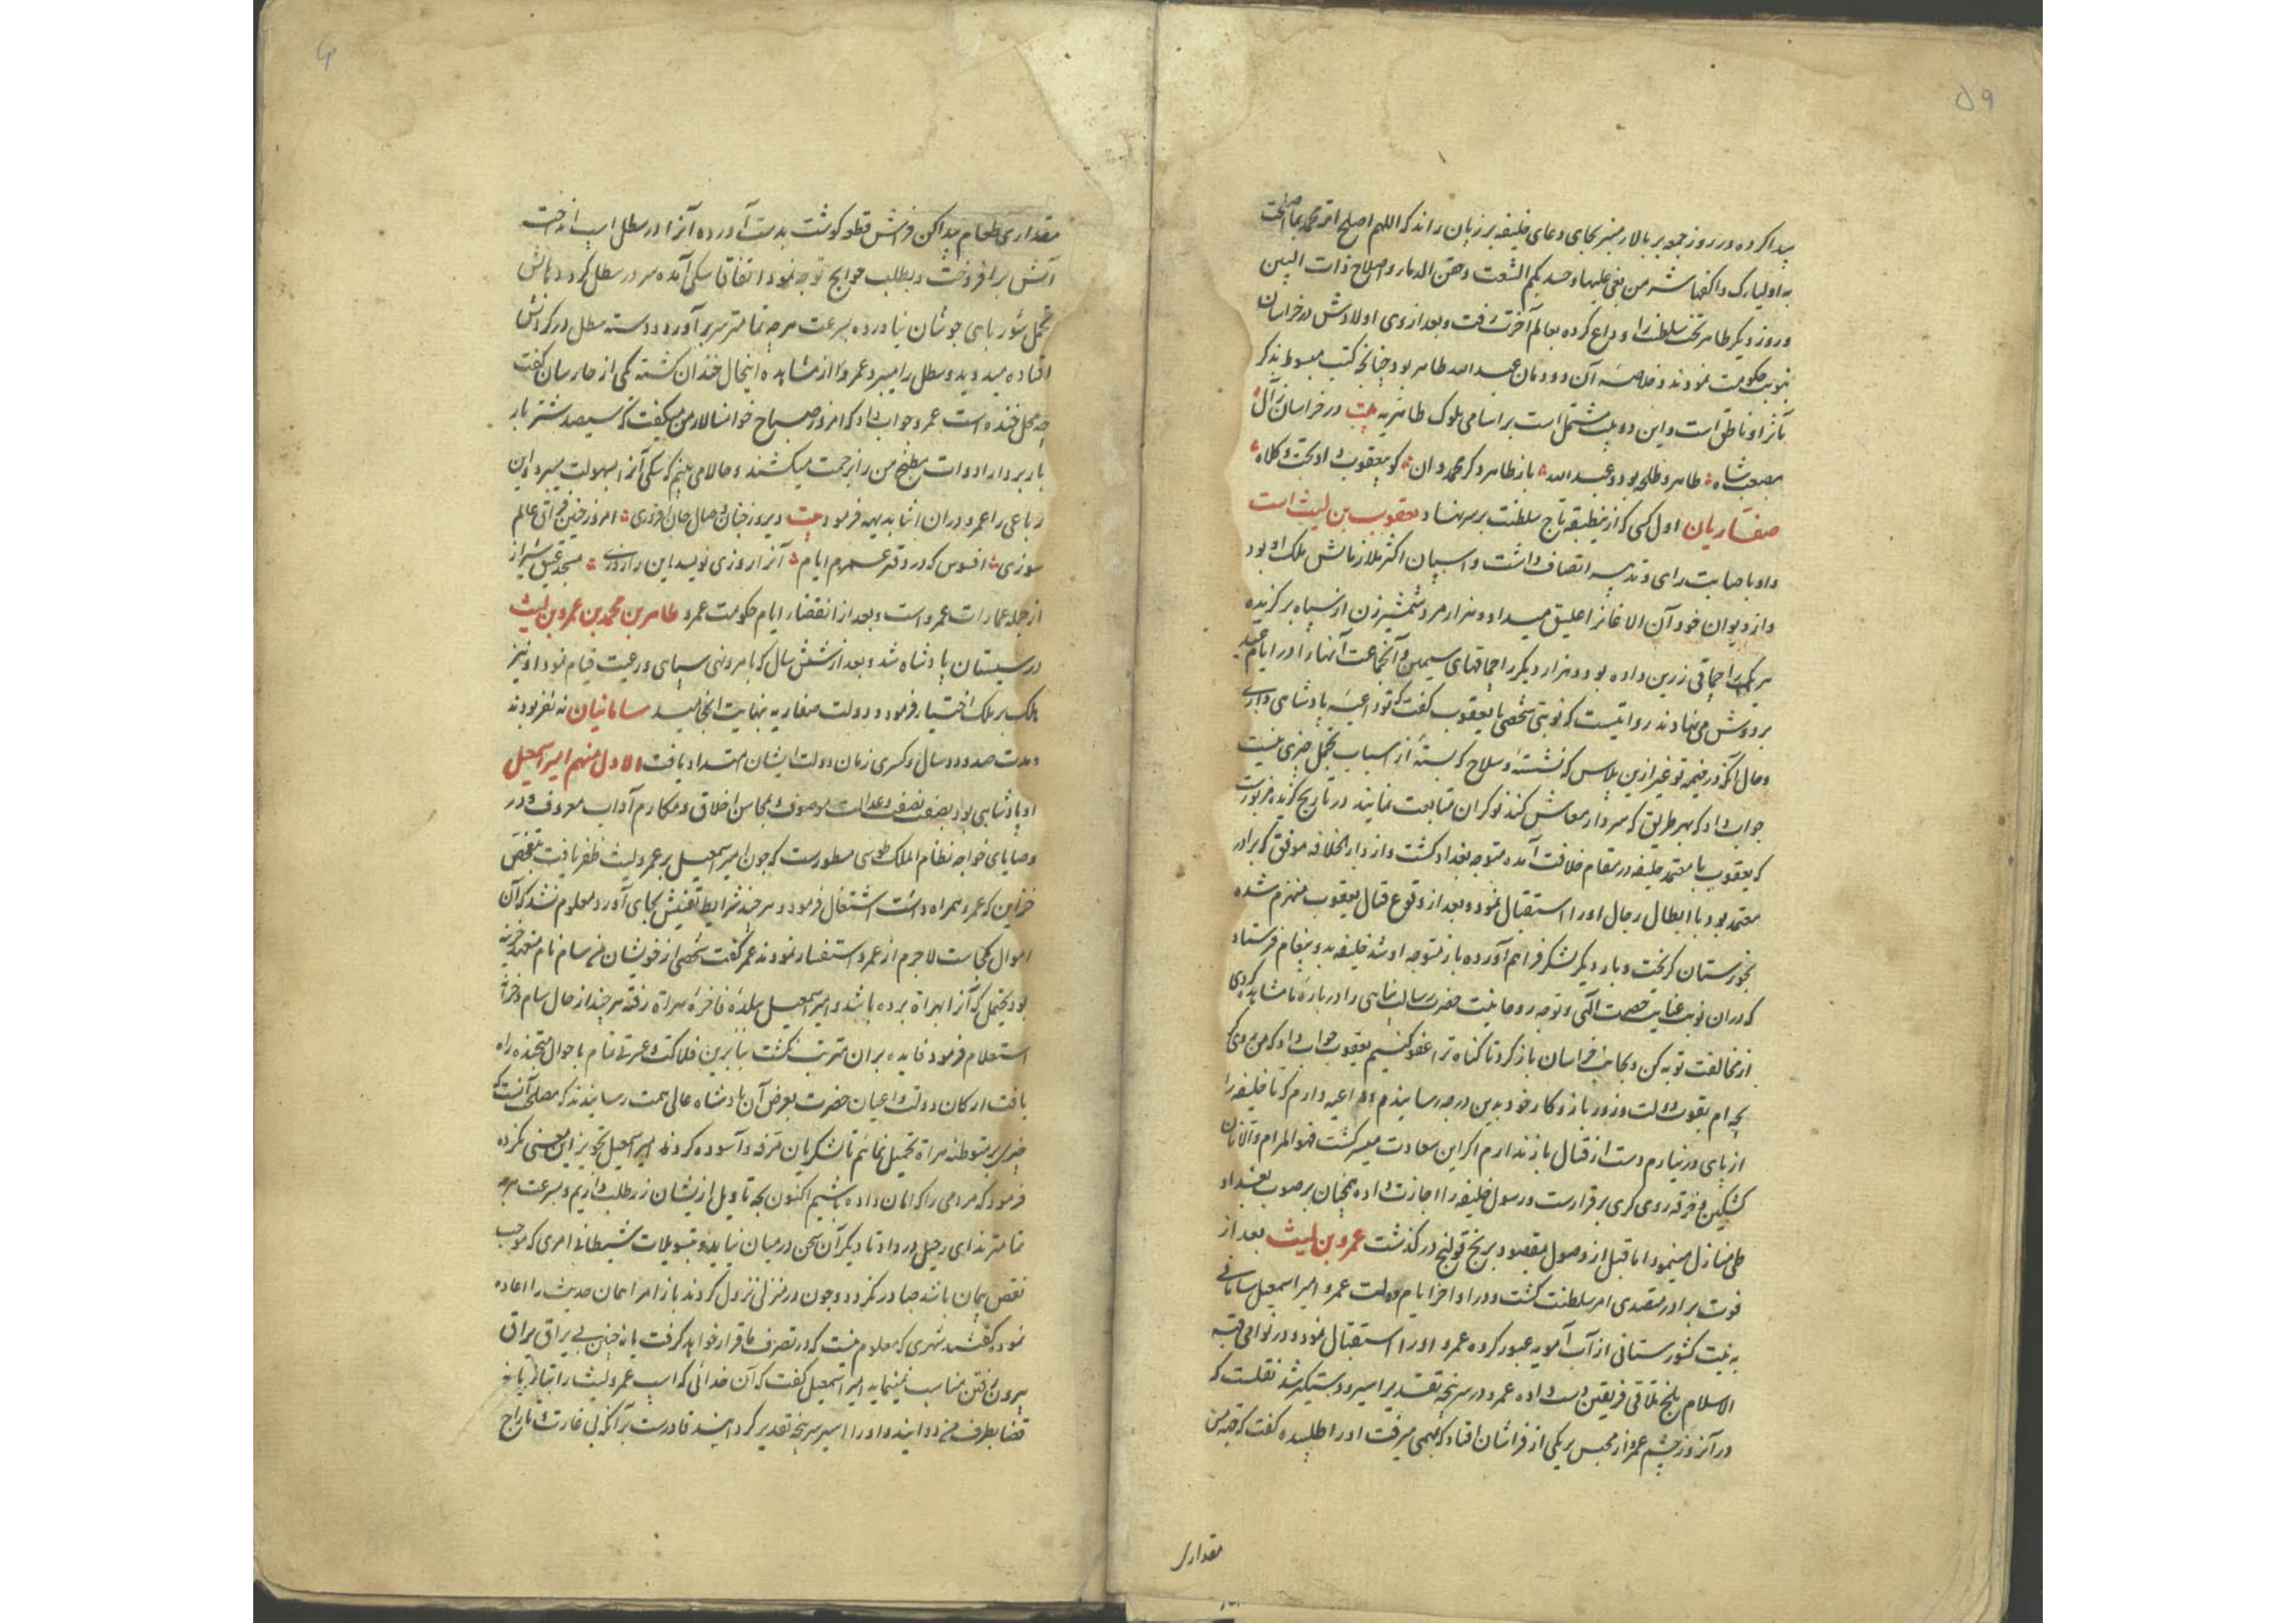 ۵۹
پیدا کرده در روز جمعه بر بالای منبر بجای دعای خلیفه بر زبان راند که اللهم اصلح امة محمد بما اصلحت
به اولیاءک واکفها شر من بغی علیها و حشد بلم الشعث وحقن الدماء واصلاح ذات البین
و روز دیگر طاهر تخت سلطنت را وداع کرده بعالم آخرت رفت و بعد از وی اولادش در خراسان
بنوبت حکومت نمودند و خلاصه آن دودمان عبد الله طاهر بود چنانچه کتب مبسوط بذکر
مآثر او ناطق است و این دو بیت مشتمل است بر اسامی ملوک طاهریه بیت در خراسان ز آل
مصعب شاه طاهر و طلحه بود و عبد الله باز طاهر دگر محمد دان کو بیعقوب داد تخت و کلاه
صفاریان اول کسی که ازین طبقه تاج سلطنت بر سر نهاد یعقوب بن لیث است
و او باصابت رای و تدبیر اتصاف داشت و اسپان اکثر ملازمانش ملک او بود
و از دیوان خود آن الاغانرا علیق میداد و هزار مرد شمشیر زن از سپاه برگزیده
هر یک را چماقی زرین داده بود و هزار دیگر را چماقهای سیمین و آنجماعت آنها را در ایام عید
بر دوش می نهادند روایتست که نوبتی شخصی با یعقوب گفت که تو داعیه پادشاهی داری
و حال آنکه در خیمه تو غیر ازین پلاس که نشسته و سلاح که بسته از اسباب تجمل چیزی نیست
جواب داد که بهر طریق که سردار معاش کند نوکران متابعت نمایند در تاریخ گزیده مزبورست
که یعقوب با معتمد خلیفه در مقام خلافت آمده متوجه بغداد گشت و از دار الخلافه موفق که برادر
معتمد بود با ابطال رجال او را استقبال نمود و بعد از وقوع قتال یعقوب منهزم شده
بخوزستان گریخت و بار دیگر لشکر فراهم آورده باز متوجه او شد خلیفه بدو پیغام فرستاد
که در آن نوبت عنایت حضرت الهی و توجه روحانیت حضرت رسالت پناهی را در باره ما مشاهده کردی
از مخالفت توبه کن و بجانب خراسان باز گرد تا گناه ترا عفو کنیم یعقوب جواب داد که من روی
بچه ام بقوت دولت و زور بازو کار خود بدین درجه رسانیدم و داعیه دارم که تا خلیفه را
از پای در نیارم دست از قتال باز ندارم اگر این سعادت میسر گشت فهو المرام و الا نان
کشکین و حرفه رویگری برقرارست و رسول خلیفه را اجازت داده همچنان بر صوب بغداد
طی منازل مینمود اما قبل از وصول بمقصود برنج قولنج درگذشت عمرو بن لیث بعد از
فوت برادر متصدی امر سلطنت گشت و در اواخر ایام دولت عمرو امیر اسمعیل سامانی
به نیت کشور ستانی از آب آمویه عبور کرده عمرو او را استقبال نمود و در نواحی قبه
الاسلام بلخ تلاقی فریقین دست داده عمرو در سرپنجه تقدیر اسیر و دستگیر شد نقلست که
در آنروز چشم عمرو از محبس بر یکی از فراشان افتاد که بمهمی میرفت او را طلبیده گفت که جهة من
مقداری
مقداری طعام پیدا کن فراش قطعه گوشت بدست آورده آنرا در سطل اسپ انداخت
آتش برافروخت و بطلب حوایج توجه نمود اتفاقا سگی آمده سر در سطل کرد و دهانش
تحمل شوربای جوشان نیاورده بسرعت هرچه تمامتر سر برآورد و دسته سطل در گردنش
افتاده میدوید و سطل را میبرد عمرو از مشاهده اینحال خندان گشته یکی از حارسان گفت
چه محل خنده است عمرو جواب داد که امروز صباح خوانسالار من میگفت که سیصد شتر بار
بار بردار ادوات مطبخ من را بزحمت میکشند و حالا می بینم که سگی آنرا بسهولت میبرد و این
رباعی را عمرو در آن اثنا بدیهه فرمود بیت دیروز چنان وصال جان افروزی امروز چنین فراق عالم
سوزی افسوس که در دفتر عمرم ایام آنرا روزی نویسد این را روزی مسجد عتیق شیراز
از جمله عمارات عمرو است و بعد از انقضاء ایام حکومت عمرو طاهر بن محمد بن عمرو بن لیث
در سیستان پادشاه شد و بعد از شش سال که بامر و نهی سپاهی و رعیت قیام نمود او نیز
ملک بر ملک اختیار فرمود و دولت صفاریه بنهایت انجامید سامانیان نه نفر بودند
و مدت صد و دو سال و کسری زمان دولت ایشان امتداد یافت الاول منهم امیر اسمعیل
او پادشاهی بود بصفت نصفت و عدالت موصوف و بمحاسن اخلاق و مکارم آداب معروف و در
وصایای خواجه نظام الملک طوسی مسطورست که چون امیر اسمعیل بر عمرو لیث ظفر یافت بتفحص
خزاین که عمرو همراه داشت اشتغال فرمود و هرچند شرایط تفتیش بجای آورد معلوم نشد که آن
اموال کجاست لاجرم از عمرو استفسار نمودند عمرو گفت شخصی از خویشان من سام نام متعهد خزینه
بود یحتمل که آنرا بهراة برده باشد و امیر اسمعیل ببلده فاخره هراة رفته هرچند از حال سام و خزانه
استعلام فرمود فایده بر آن مترتب نگشت بنابرین فلاکت و عسرتی تمام باحوال متجنده راه
یافت ارکان دولت و اعیان حضرت بعرض آن پادشاه عالی همت رسانیدند که مصلحت آنست که
چیزی بر متوطنه هراة تحمیل نمائیم تا لشکریان مرفه و آسوده گردند امیر اسمعیل تجویز این معنی نکرده
فرمود که مردمی را که امان داده باشیم اکنون بچه تاویل از یشان زر طلب داریم و بسرعت هرچه
تمامتر ندای رحیل در داد تا دیگر آن سخن در میان نیاید و بتسویلات شیطانی امری که موجب
نقض پیمان باشد صادر نگردد و چون در منزلی نزول کردند باز امرا همان حدیث را اعاده
نموده گفتند شهری که معلوم نیست که در تصرف ما قرار خواهد گرفت یا نه چنین بی یراق
بیرون رفتن مناسب نمینماید امیر اسمعیل گفت که آن خدائی که اسپ عمرو لیث را بتازیانه
قضا بطرف من دوانید و او را اسیر سرپنجه تقدیر گردانید قادرست بر آنکه بی غارت و تاراج